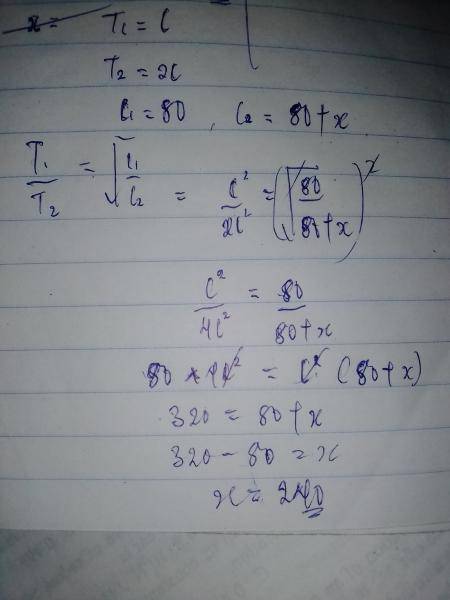 x = T₁ = l
T₂ = 2l
l₁ = 80 , l₂ = 80 + x
T₁/T₂ = √(l₁/l₂) = l²/2l² = (√(80/80+x))²
l²/4l² = 80/80+x
80 × 4l² = l² (80 + x)
320 = 80 + x
320 - 80 = x
x = 240